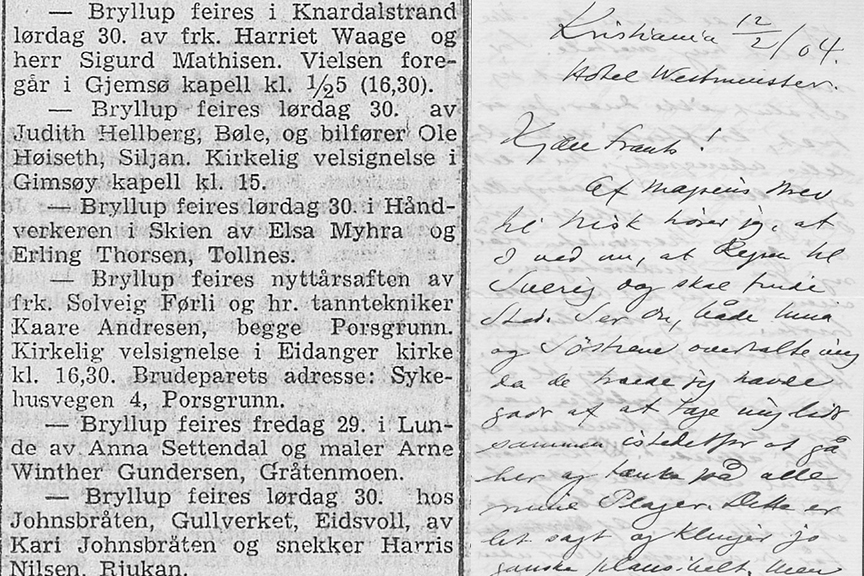 — Bryllup feires i Knardalstrand
lørdag 30. av frk. Harriet Waage og
herr Sigurd Mathisen. Vielsen fore-
går i Gjemsø kapell kl. ½5 (16,30).
— Bryllup feires lørdag 30. av
Judith Hellberg, Bøle, og bilfører Ole
Høiseth, Siljan. Kirkelig velsignelse i
Gimsøy kapell kl. 15.
— Bryllup feires lørdag 30. i Hånd-
verkeren i Skien av Elsa Myhra og
Erling Thorsen, Tollnes.
— Bryllup feires nyttårsaften av
frk. Solveig Førli og hr. tanntekniker
Kaare Andresen, begge Porsgrunn.
Kirkelig velsignelse i Eidanger kirke
kl. 16,30. Brudeparets adresse: Syke-
husvegen 4, Porsgrunn.
— Bryllup feires fredag 29. i Lun-
de av Anna Settendal og maler Arne
Winther Gundersen, Gråtenmoen.
— Bryllup feires lørdag 30. hos
Johnsbråten, Gullverket, Eidsvoll, av
Kari Johnsbråten og snekker Harris
Nilsen, Rjukan.
Kristiania 12/2/04.
Hotel Westminster.
Kjære Frants!
Af Brev
til hører jeg, at
I ved nu, at Rejsen til
Sverig og skal finde
Sted. Ser Du, både
og Søstrene overtalte mig
da de troede jeg havde
godt af at tage mig lidt
sammen istedetfor at gå
her og tænke på alle
mine Plager. Dette er
let sagt og klinger jo
ganske plausibelt, men